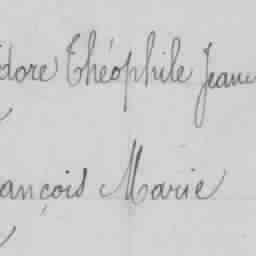 dore Théophile Jean
ançois Marie